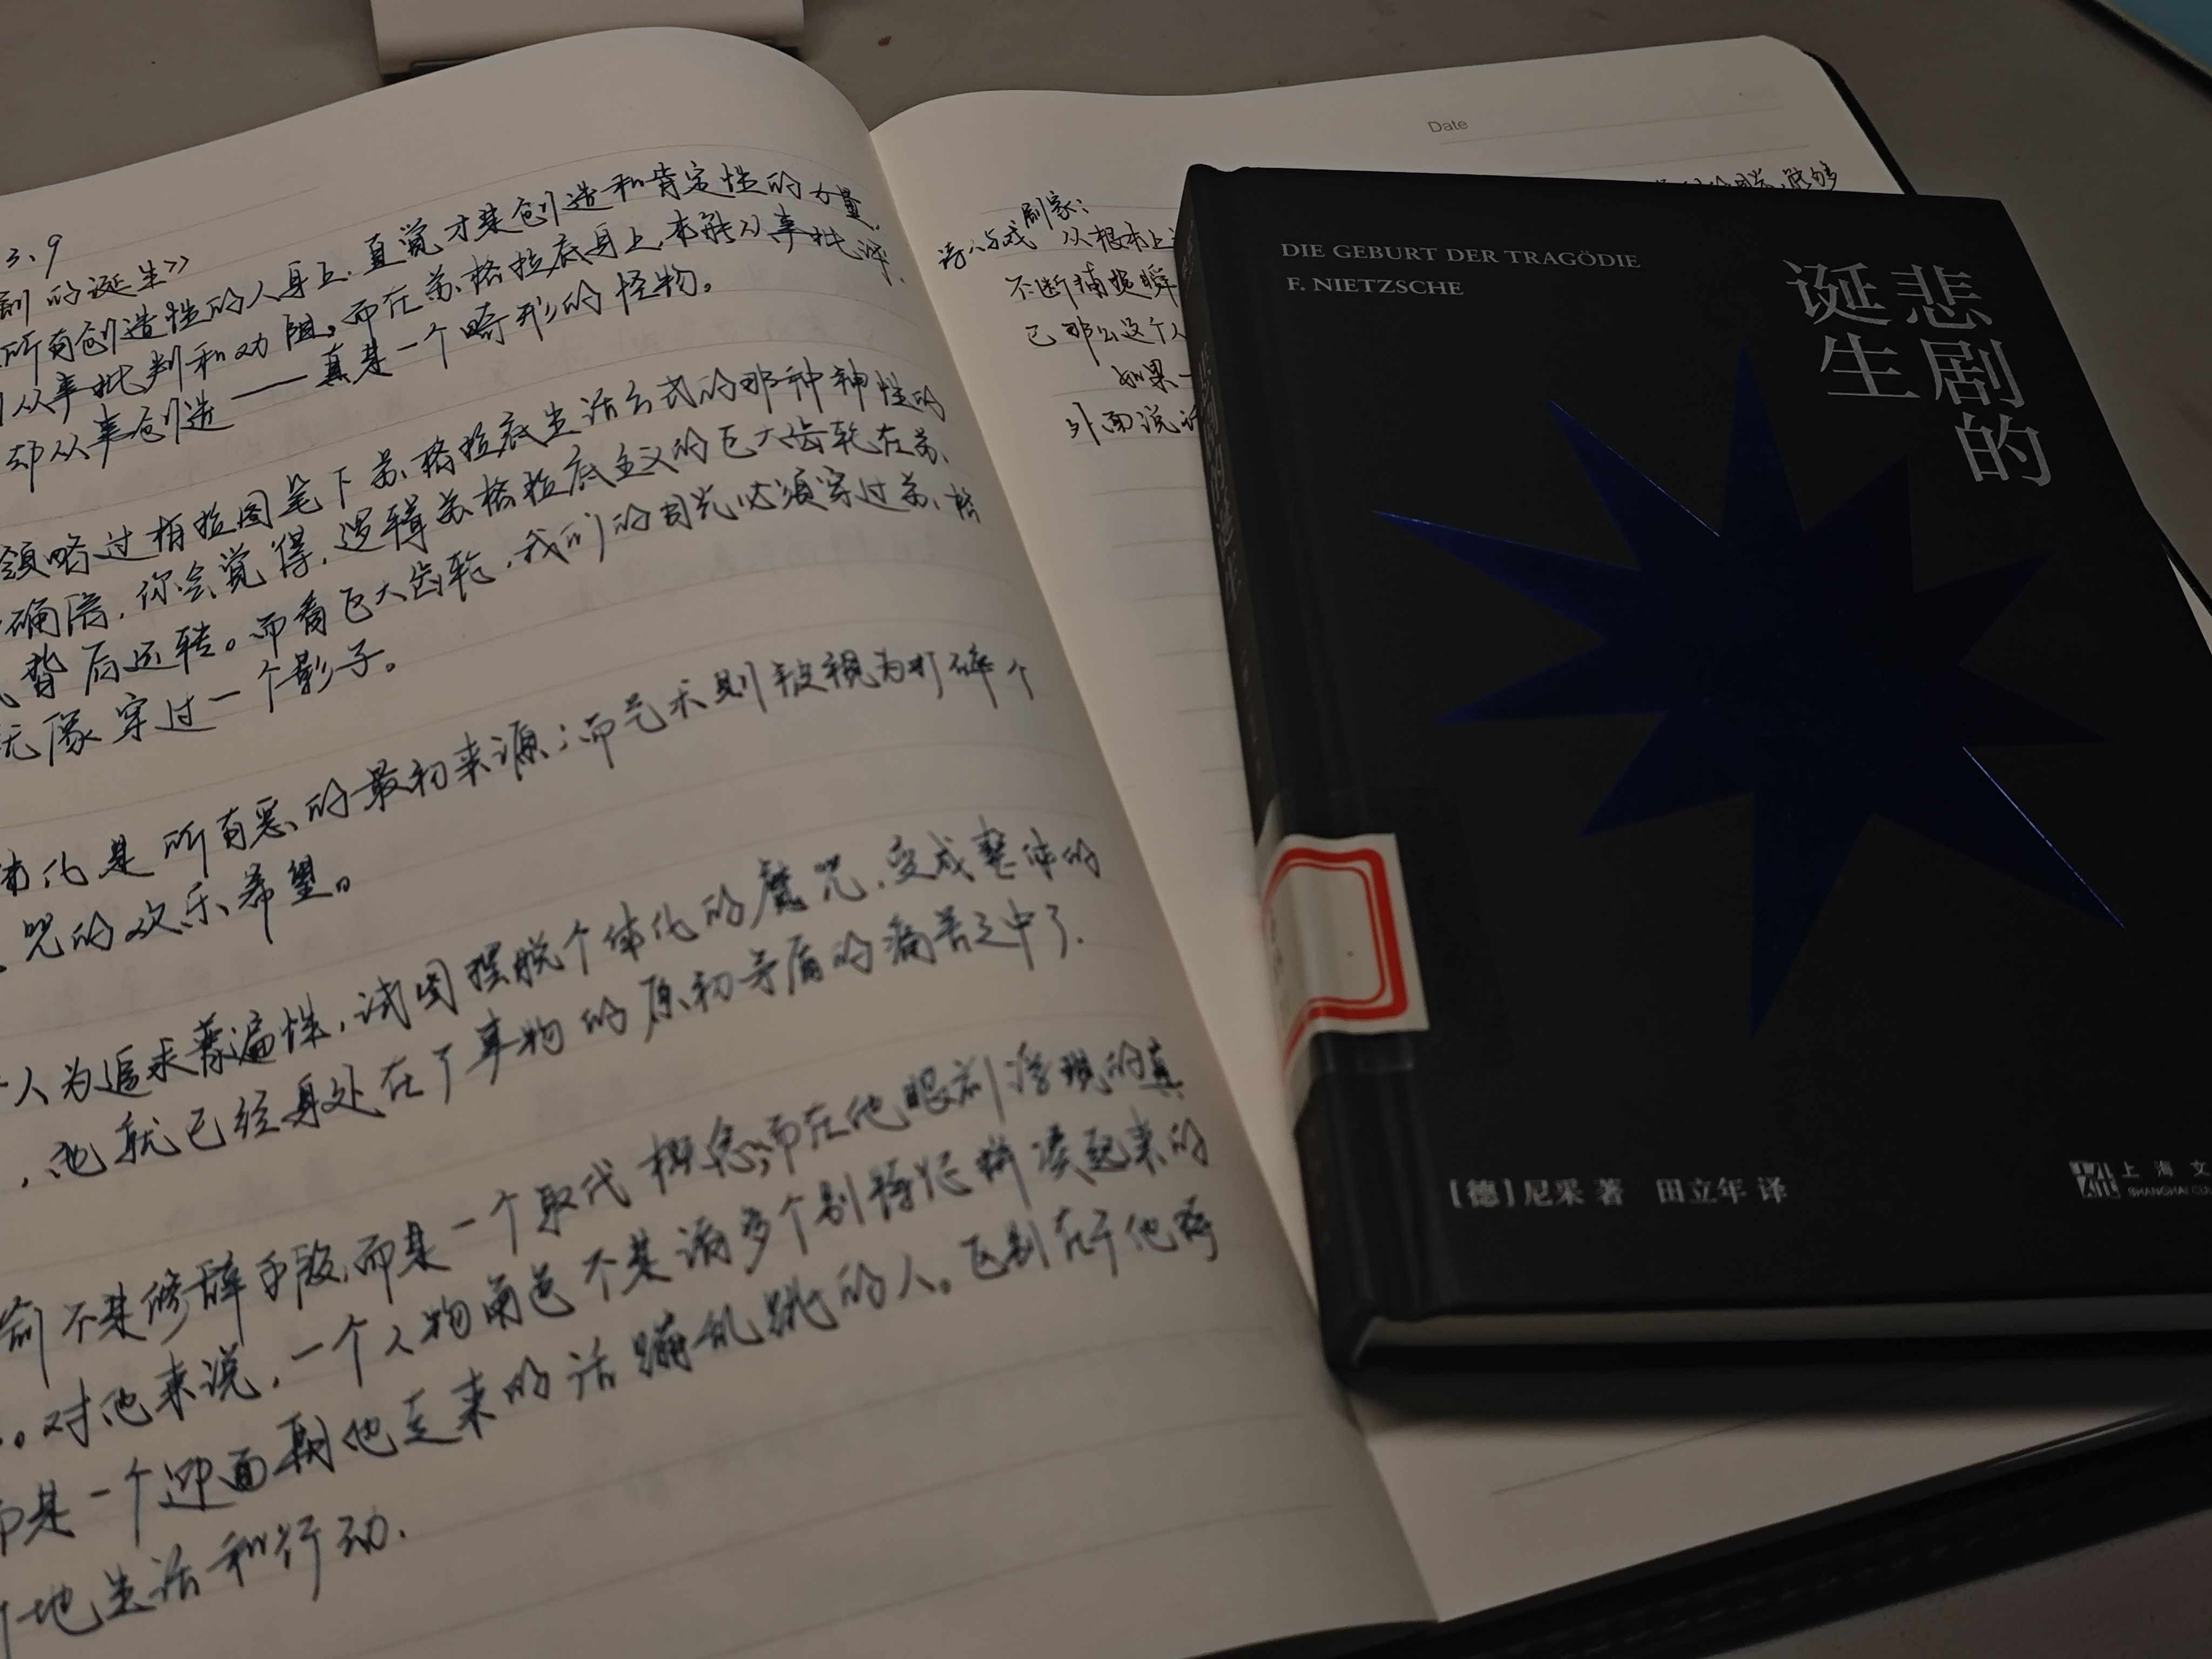 3.9
剧的诞生》
所有创造性的人身上，直觉才是创造和肯定性的力量，
从事批判和劝阻。而在苏格拉底身上，本能从事批评，
却从事创造——真是一个畸形的怪物。
领略过柏拉图笔下苏格拉底生活方式的那种神性的
确信，你会觉得，逻辑苏格拉底主义的巨大齿轮在苏、
背后运转。而看巨大齿轮，我们的目光必须穿过苏格
像穿过一个影子。
体化是所有恶的最初来源；而艺术则被视为打碎个
咒的欢乐希望。
人为追求普遍性，试图摆脱个体化的魔咒，变成整体的
，他就已经身处在了事物的原初矛盾的痛苦之中了。
前不是修辞手段，而是一个取代概念，而在他眼前浮现的真
。对他来说，一个人物角色不是诸多个别特征拼凑起来的
而是一个迎面朝他走来的活蹦乱跳的人。区别在于他
地生活和行动.
Date
诗人与戏剧家：
从根本上
能够
不断捕捉瞬
已 那么这个人
如果一
外面说话
DIE GEBURT DER TRAGÖDIE
F. NIETZSCHE
悲剧的
诞生
悲剧的诞生
[德]尼采 著 田立年 译
上海文
SHANGHAI CUL